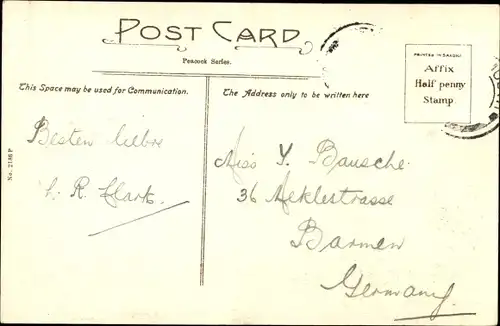 POST CARD
Peacock Series.
PRINTED IN SAXONY
Affix
Half penny
Stamp.
This Space may be used for Communication.
The Address only to be written here
Besten
R. Clark.
Miss Y. Bausche.
36
Barmen
Germany.
No. 2186 P